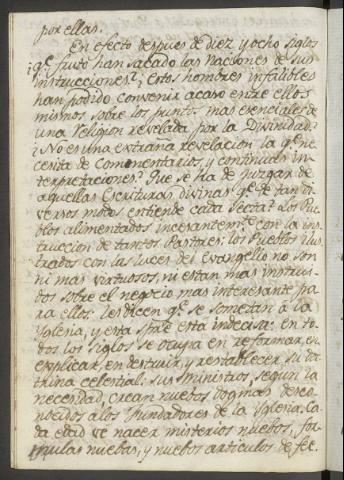 por ellas.
En efecto despues de diez, y ocho siglos
¿qe. fruto han sacado las Naciones de sus
instrucciones? ¿estos hombres infalibles
han podido convenir acaso entre ellos
mismos sobre los puntos mas esenciales de
una Religion revelada por la Divinidad?
¿No es una extraña revelacion la qe. ne
cesita de Comentarios, y continuas in-
terpretaciones? Que se ha de juzgar de
aquellas Escrituras divinas qe. de tan di-
versos modos entiende cada secta? Los Pue
blos alimentados incesantemte. con la ins
truccion de tantos Pastores: los Pueblos ilus
trados con las luces del evangelio no son
ni mas virtuosos, ni estan mas instrui-
dos sobre el negocio mas interesante pa
ra ellos: les dicen qe. se sometan a la
Iglesia, y esta spre. está indecisa: En to-
dos los siglos se ocupa en reformar, en
explicar, en destruir, y restablecer su doc
trina celestial: sus ministros, segun la
necesidad, crean nuebos dogmas desco-
nocidos a los fundadores de la Iglesia. Ca
da edad vé nacer misterios nuebos, for-
mulas nuebas, y nuebos articulos de feé.